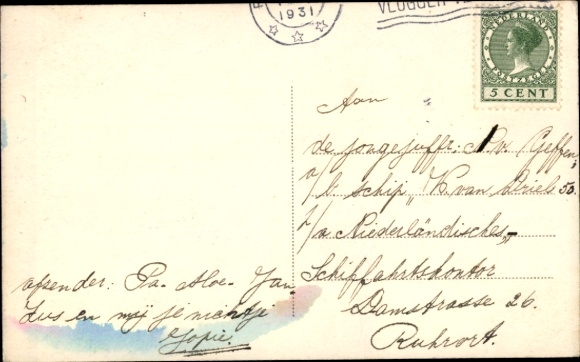 1931
VLUGGER
NEDERLAND
POSTZEGEL
5 CENT
Aan
de jongejuffr: N. v. Geffen,
a/b schip „K van Driel 50.
p/a Niederländisches
Schiffahrtskontor
Damstrasse 26.
Ruhrort.
afzender: Pa. Moe. Jan
Zus en mij je nichtje
Jopie.